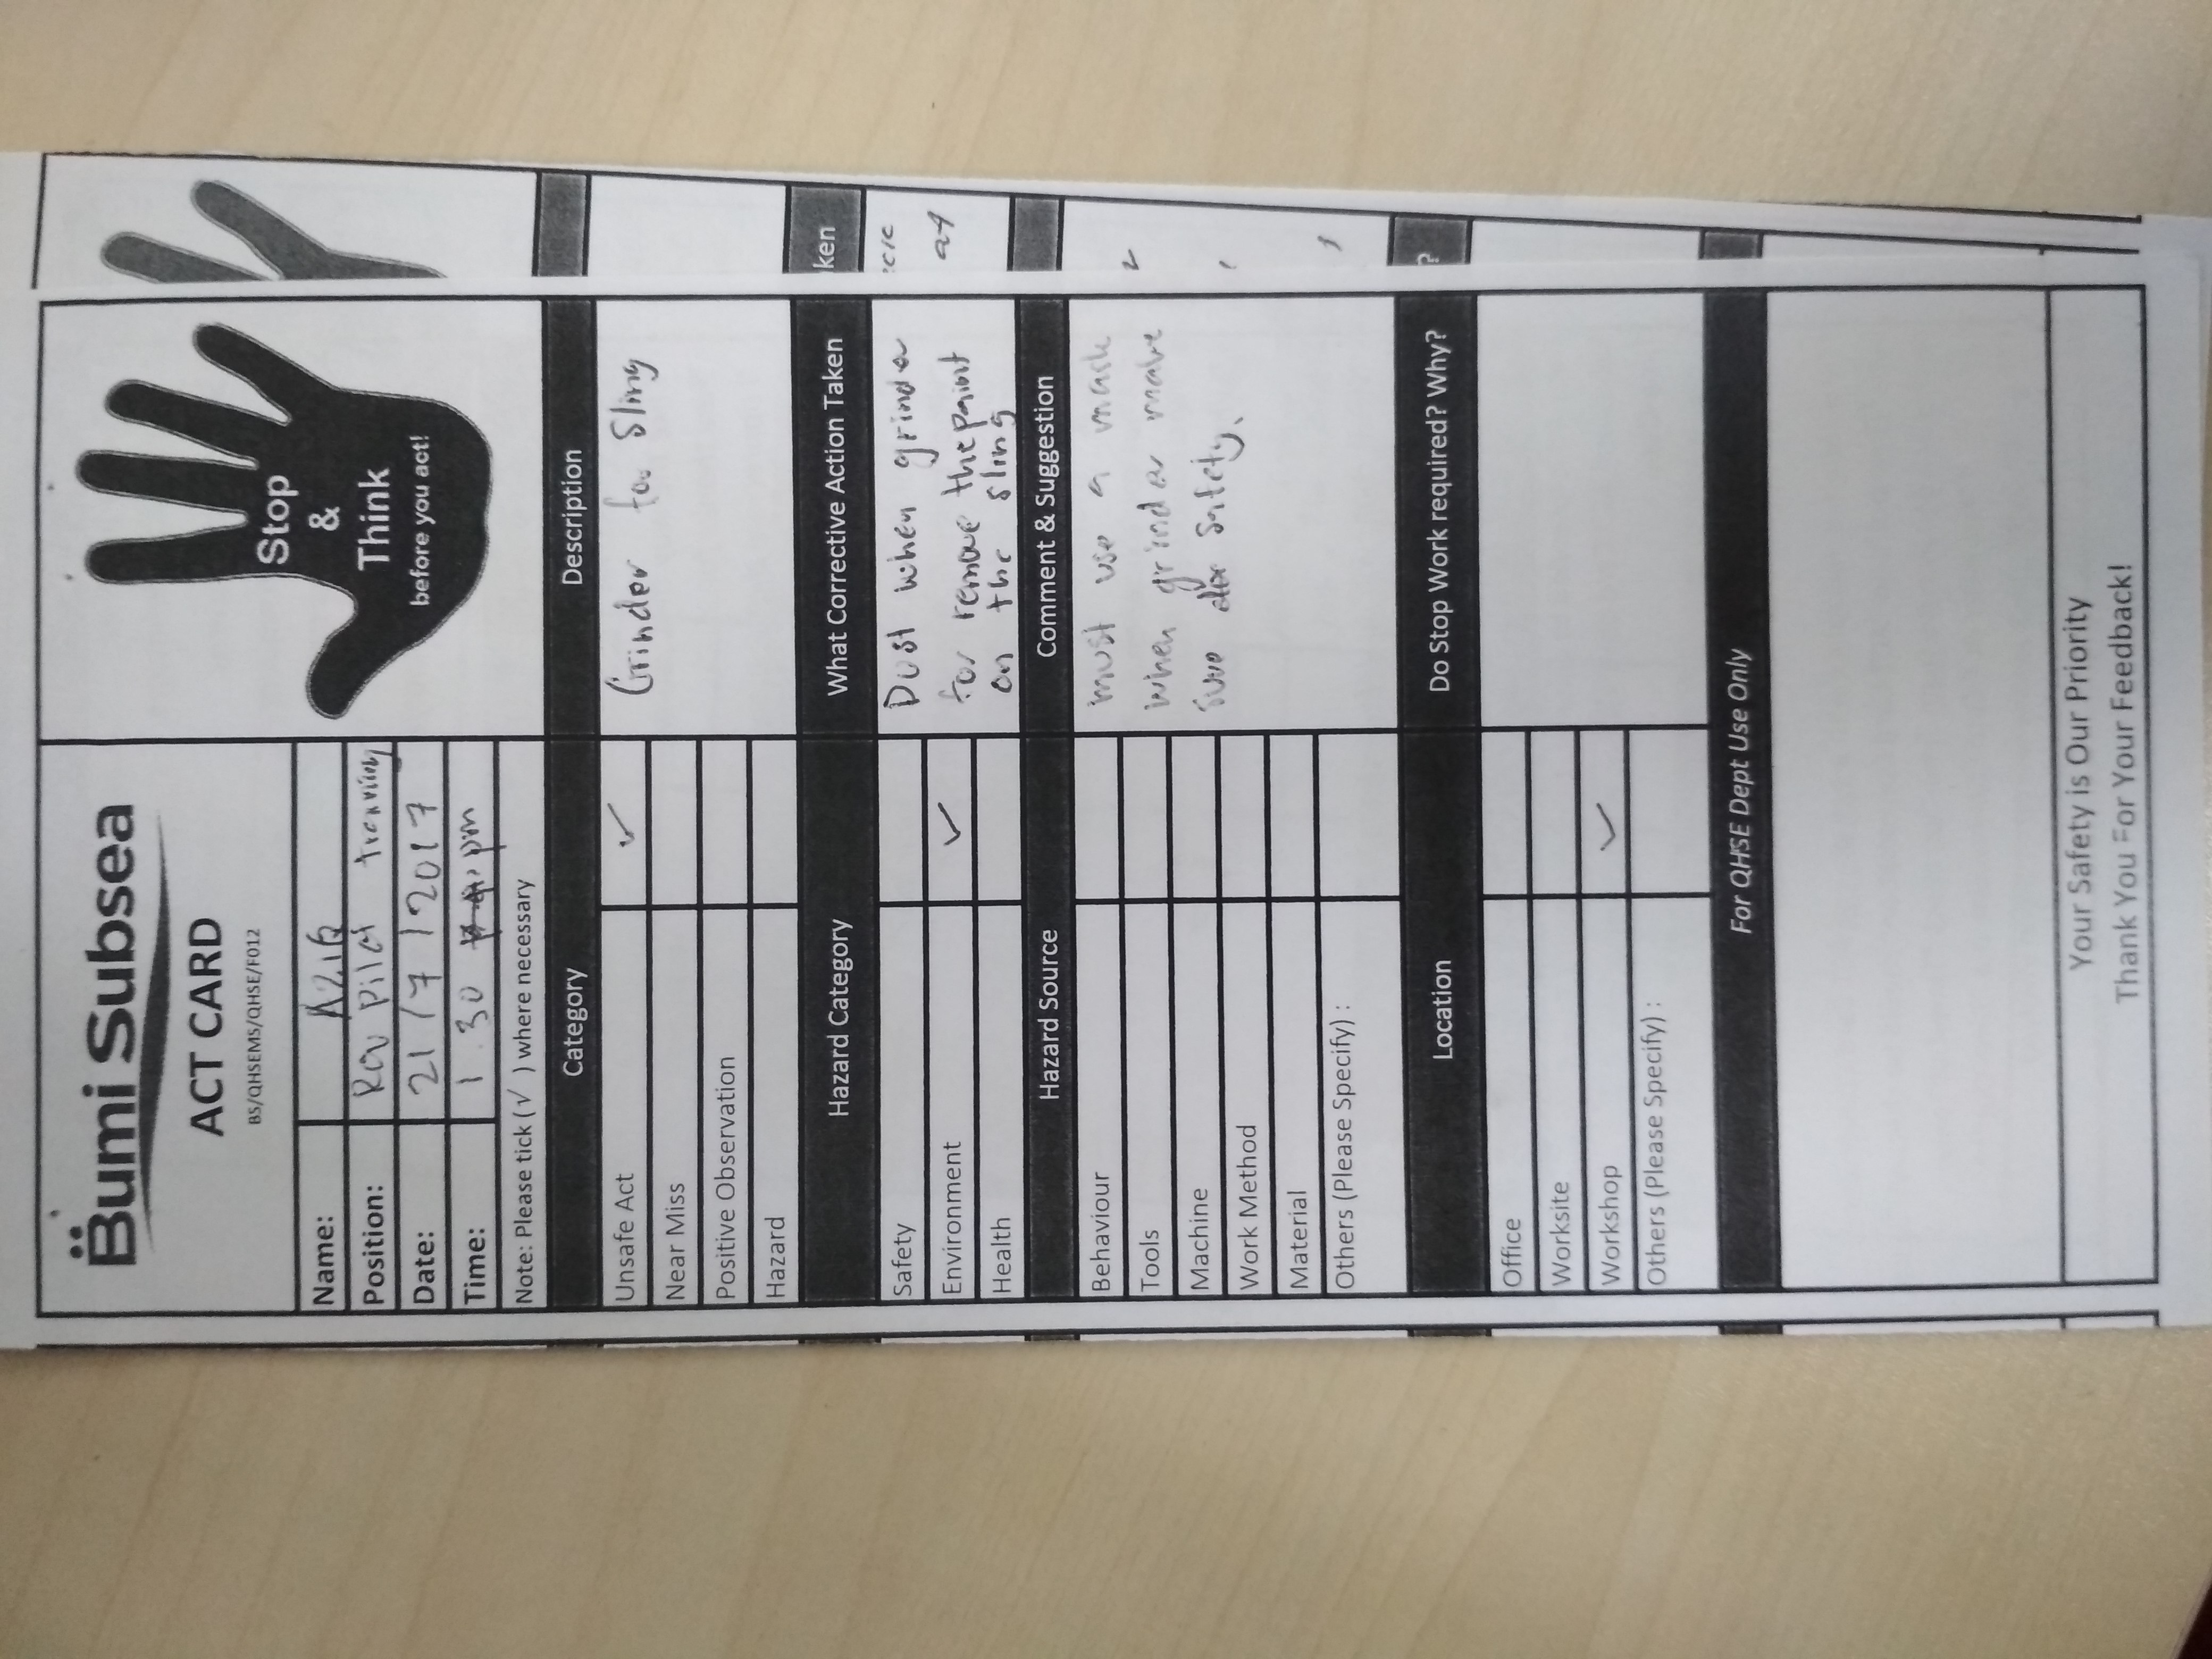 Bumi Subsea
ACT CARD
BS/QHSEMS/QHSE/F012
Stop
&
Think
before you act!
Name: Aziq
Position: Rov Pilot
Date: 21/7/2017
Time: 1.30 pm
Note: Please tick (√ ) where necessary
Category Description
Unsafe Act ✓ Grinder for Sling
Near Miss
Positive Observation
Hazard
Hazard Category What Corrective Action Taken
Safety Dust when grinder
Environment ✓ for remove the paint
Health on the sling
Hazard Source Comment & Suggestion
Behaviour must use a mask
Tools when grinder make
Machine sure safety.
Work Method
Material
Others (Please Specify) :
Location Do Stop Work required? Why?
Office
Worksite
Workshop ✓
Others (Please Specify) :
For QHSE Dept Use Only
Your Safety is Our Priority
Thank You For Your Feedback!
ken
at
?